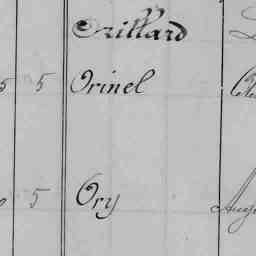 Crillard
5 5 Orinel
5 Ory